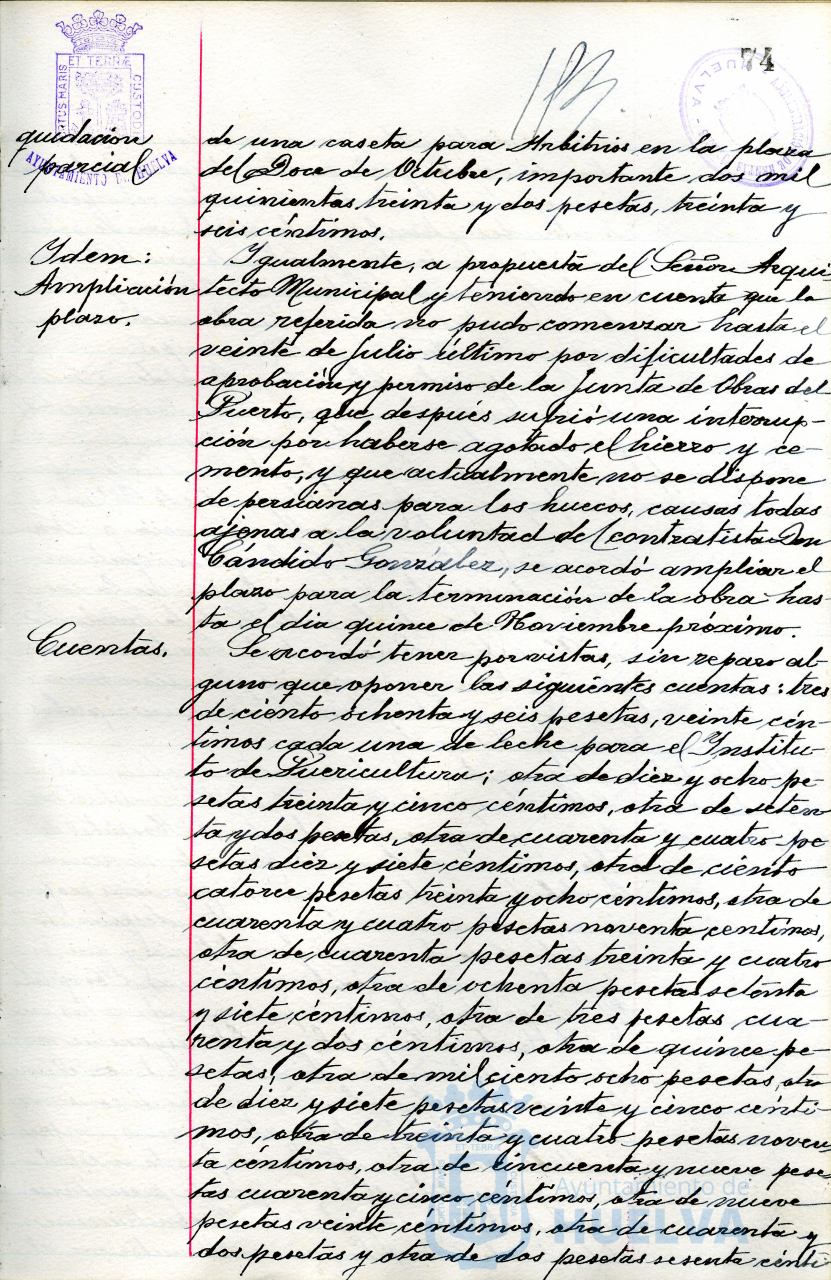 74
ET TERRÆ
CUSTODI
PORTUS MARIS
AYUNTAMIENTO DE HUELVA
quidación
parcial
de una caseta para Arbitrios en la plaza
del Doce de Octubre, importante dos mil
quinientas treinta y dos pesetas, treinta y
seis céntimos.
Idem:
Ampliación
plazo.
Igualmente, a propuesta del Señor Arqui-
tecto Municipal y teniendo en cuenta que la
obra referida no pudo comenzar hasta el
veinte de Julio último por dificultades de
aprobación y permiso de la Junta de Obras del
Puerto, que después sufrió una interrup-
ción por haberse agotado el hierro y ce-
mento, y que actualmente no se dispone
de persianas para los huecos, causas todas
ajenas a la voluntad del contratista Don
Cándido González, se acordó ampliar el
plazo para la terminación de la obra has-
ta el dia quince de Noviembre próximo.
Cuentas.
Se acordó tener por vistas, sin reparo al-
guno que oponer las siguientes cuentas: tres
de ciento ochenta y seis pesetas, veinte cén-
timos cada una de leche para el Institu-
to de Puericultura; otra de diez y ocho pe-
setas treinta y cinco céntimos, otra de seten-
ta y dos pesetas, otra de cuarenta y cuatro pe-
setas diez y siete céntimos, otra de ciento
catorce pesetas treinta y ocho céntimos, otra de
cuarenta y cuatro pesetas noventa centimos,
otra de cuarenta pesetas treinta y cuatro
céntimos, otra de ochenta pesetas setenta
y siete céntimos, otra de tres pesetas cua-
renta y dos céntimos, otra de quince pe-
setas, otra de mil ciento ocho pesetas, otra
de diez y siete pesetas veinte y cinco cénti-
mos, otra de treinta y cuatro pesetas noven-
ta céntimos, otra de cincuenta y nueve pese-
tas cuarenta y cinco centimos, otra de nueve
pesetas veinte céntimos, otra de cuarenta y
dos pesetas y otra de dos pesetas sesenta cénti
Ayuntamiento de
HUELVA